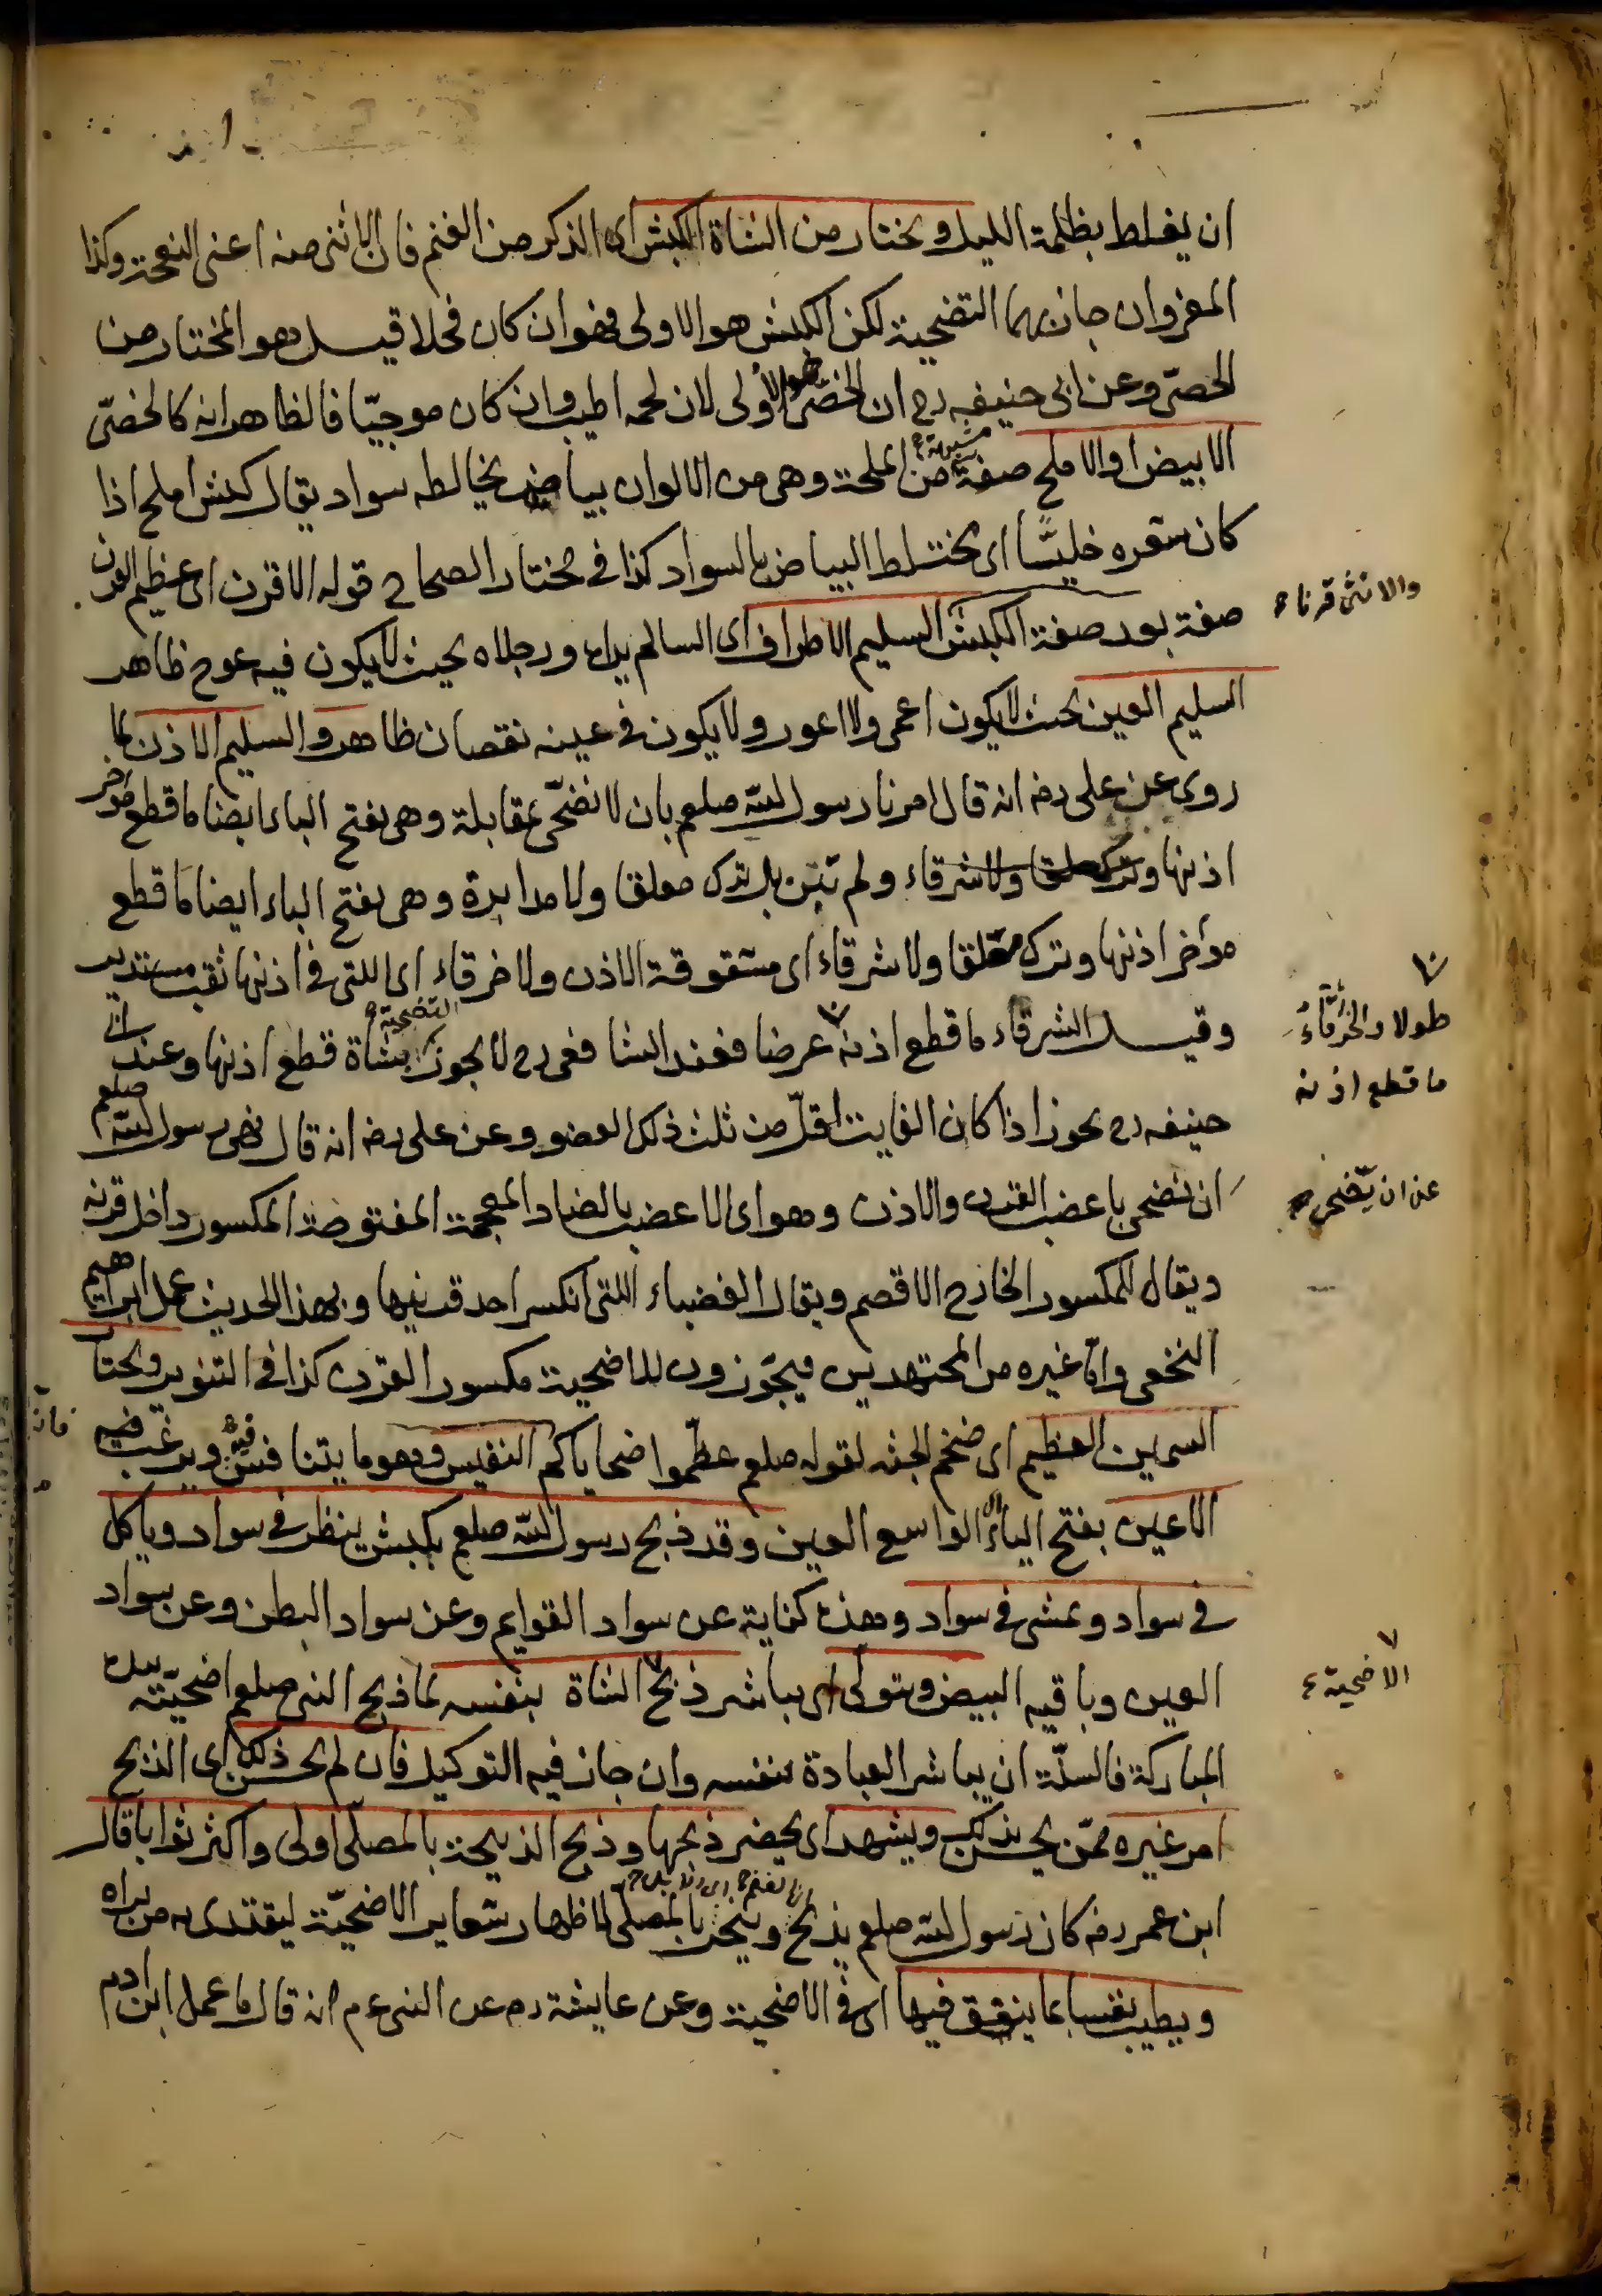 ان يغلط بظلمة الليل ويختار من الشاة الكبش اى الذكر من الغنم فان الانثى منه اعنى النعجة وكذا
المعز وان جاز بهما التضحية لكن الكبش هو الاولى فهو ان كان فحلا قيل هو المختار من
الخصىّ وعن ابى حنيفه رح ان الخصىّ هو الأولى لان لحمه اطيب وان كان موجيّا فالظاهر انه كالخصىّ
الابيض او الاملح صفة مشبهة من الملحة وهى من الالوان بياض يخالطه سواد يقال كبش املح اذا
كان شعره خليسًا اى مختلط البياض بالسواد كذا فى مختار الصحاح قوله الاقرن اى عظيم القرن
والانثى قرناء
صفة بعد صفة الكبش السليم الاطراف اى السالم يداه ورجلاه بحيث لا يكون فيه عوج ظاهر
السليم العين بحيث لا يكون اعمى ولا اعور ولا يكون فى عينه نقصان ظاهر والسليم الاذن لما
روى عن على رضه انه قال امرنا رسول الله صلعم بان لا نضحّى بمقابلة وهى بفتح الباء ايضا ما قطع مؤخر
اذنها وترك معلقا ولا شرقاء ولم تبن بل ترك معلقا ولا مدابرة وهى بفتح الباء ايضا ما قطع
مؤخر اذنها وترك معلقا ولا شرقاء اى مشقوقة الاذن ولا خرقاء اى اللتى فى اذنها ثقب مستدير
وقيل الشرقاء ما قطع اذنه عرضا فعند الشافعى رح لا يجوز التضحية بشاة قطع اذنها وعند ابى
طولا والخرقاء
ما قطع اذنه
حنيفه رح يجوز اذا كان الفايت اقلّ من ثلث ذلك العضو وعن على رضه انه قال نهى رسول الله صلعم
ان نضحى باعضب القرن والاذن وهو اى الاعضب بالضاد المعجمة المفتوحة المكسور داخل قرنه
عن ان يضحى
ويقال للمكسور الخارج الاقصم ويقال العضباء اللتى انكسر احد قرنيها وبهذا الحديث عمل ابراهيم
النخعى وامّا غيره من المجتهدين فيجّوزون للاضحية مكسور القرن كذا فى التنوير ويختار
السمين العظيم اى ضخم الجثه لقوله صلعم عظّموا ضحاياكم النفيس وهو ما يتنافس فيه ويرغب فيه
الاعين بفتح الياء اى الواسع العين وقد ذبح رسول الله صلعم بكبش ينظر فى سواد وياكل
فى سواد ويمشى فى سواد وهذه كناية عن سواد القوايم وعن سواد البطن وعن سواد
العين وباقيه ابيض ويتولى اى يباشر ذبح الشاة بنفسه لما ذبح النبى صلعم اضحيّته بيده
الاضحية
المباركة فالسنّة ان يباشر العبادة بنفسه وان جاز فيه التوكيل فان لم يحسن ذلك اى الذبح
امر غيره ممّن يحسن بذلك ويشهد اى يحضر ذبحها وذبح الذبيحة بالمصلّى اولى واكثر ثوابا قال
ابن عمر رضه كان رسول الله صلعم يذبح وينحر بالمصلّى لاظهار شعاير الاضحيّة ليقتدى به من يراه
ويطيب نفسا بما ينفق فيها اى فى الاضحية وعن عايشة رضه عن النبى ع م انه قال ما عمل ابن ادم